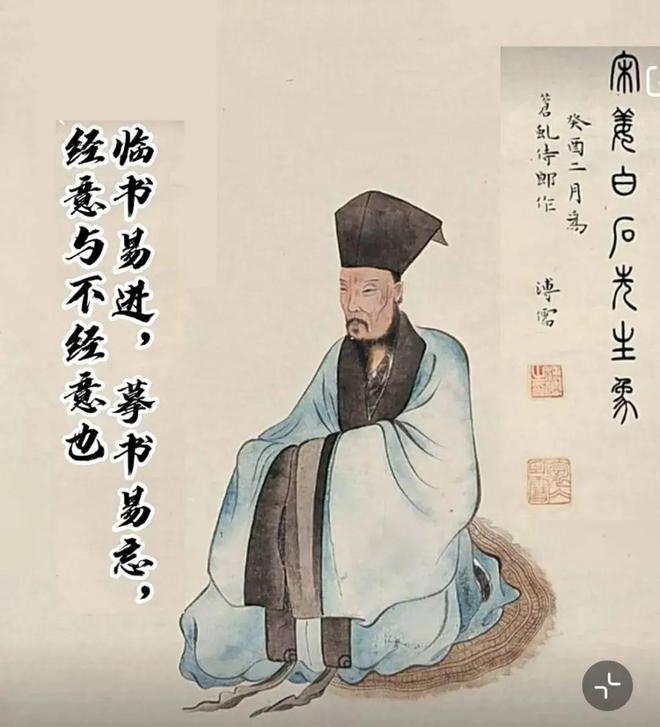 宋姜白石先生象
癸酉二月為
蒼虬侍郎作
溥儒
临书易进，摹书易忘，
经意与不经意也